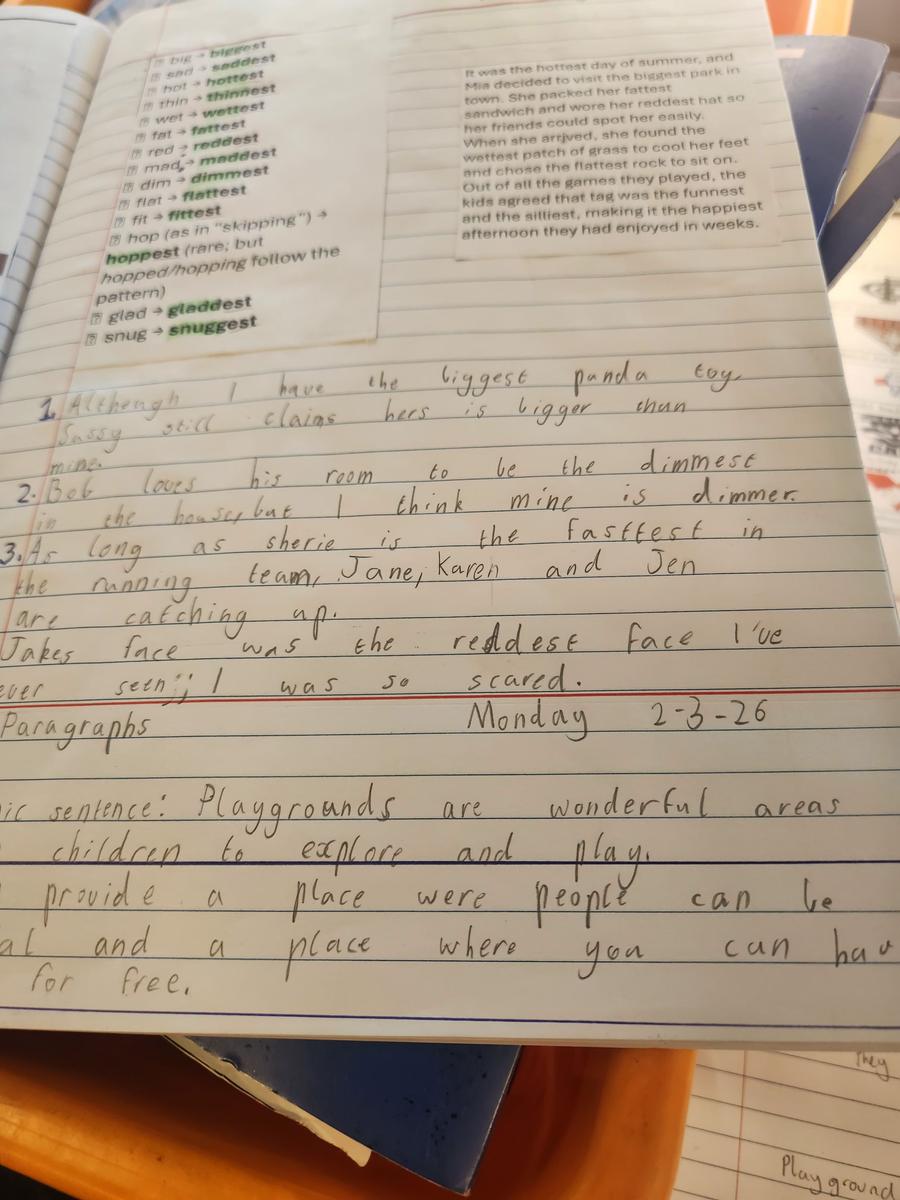 big → biggest
sad → saddest
hot → hottest
thin → thinnest
wet → wettest
fat → fattest
red → reddest
mad → maddest
dim → dimmest
flat → flattest
fit → fittest
hop (as in "skipping") →
hoppest (rare; but
hopped/hopping follow the
pattern)
glad → gladdest
snug → snuggest
It was the hottest day of summer, and
Mia decided to visit the biggest park in
town. She packed her fattest
sandwich and wore her reddest hat so
her friends could spot her easily.
When she arrived, she found the
wettest patch of grass to cool her feet
and chose the flattest rock to sit on.
Out of all the games they played, the
kids agreed that tag was the funnest
and the silliest, making it the happiest
afternoon they had enjoyed in weeks.
1. Although I have the biggest panda toy,
Sassy still claims hers is bigger than
mine.
2. Bob loves his room to be the dimmest
in the house, but I think mine is dimmer.
3. As long as sherie is the fasttest in
the running team, Jane, Karen and Jen
are catching up.
Jakes face was the reddest face I've
ever seen; I was so scared.
Paragraphs Monday 2-3-26
sentence: Playgrounds are wonderful areas
children to explore and play.
provide a place were people can be
and a place where you can
for free.
They
Playground